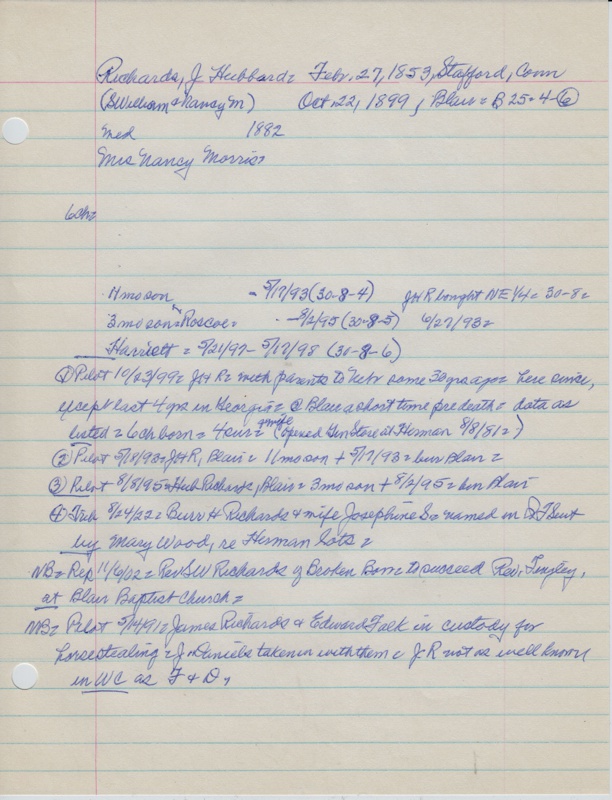 Richards, J Hubbard = Feb. 27, 1853, Stafford, Conn
(S William & Nancy M) Oct. 22, 1899, Blair = B 25-4-⑥
med 1882
Mrs Nancy Morris,
6ch=
11 mo son - 5/17/93 (30-8-4) JHR bought NE 1/4 = 30-8=
3 mo son = Roscoe = - 8/2/95 (30-8-5) 6/27/93=
Harriett = 5/21/97 - 5/17/98 (30-8-6)
① Pilot 10/23/99 = JHR = with parents to Nebr some 30 yrs ago = here since,
except last 4 yrs in Georgia = @ Blair a short time pre death = data as
listed = 6 ch born = 4 sur = & wife (opened Gen Store at Herman 8/8/81=)
② Pilot 5/18/93 = JHR, Blair = 11 mo son + 5/17/93 = bur Blair =
③ Pilot 8/8/95 = Hub Richards, Blair = 3 mo son + 8/2/95 = bur Blair
④ Trib 8/24/22 = Burr H Richards & wife Josephine S = named in Suit
by Mary Wood, re Herman lots =
NB = Rep 11/6/02 = Rev SW Richards of Broken Bow to succeed Rev. Tingley,
at Blair Baptist Church =
NB = Pilot 5/14/91 = James Richards & Edward Falk in custody for
horsestealing = J. Daniels taken in with them = J R not as well known
in WC as F & D,